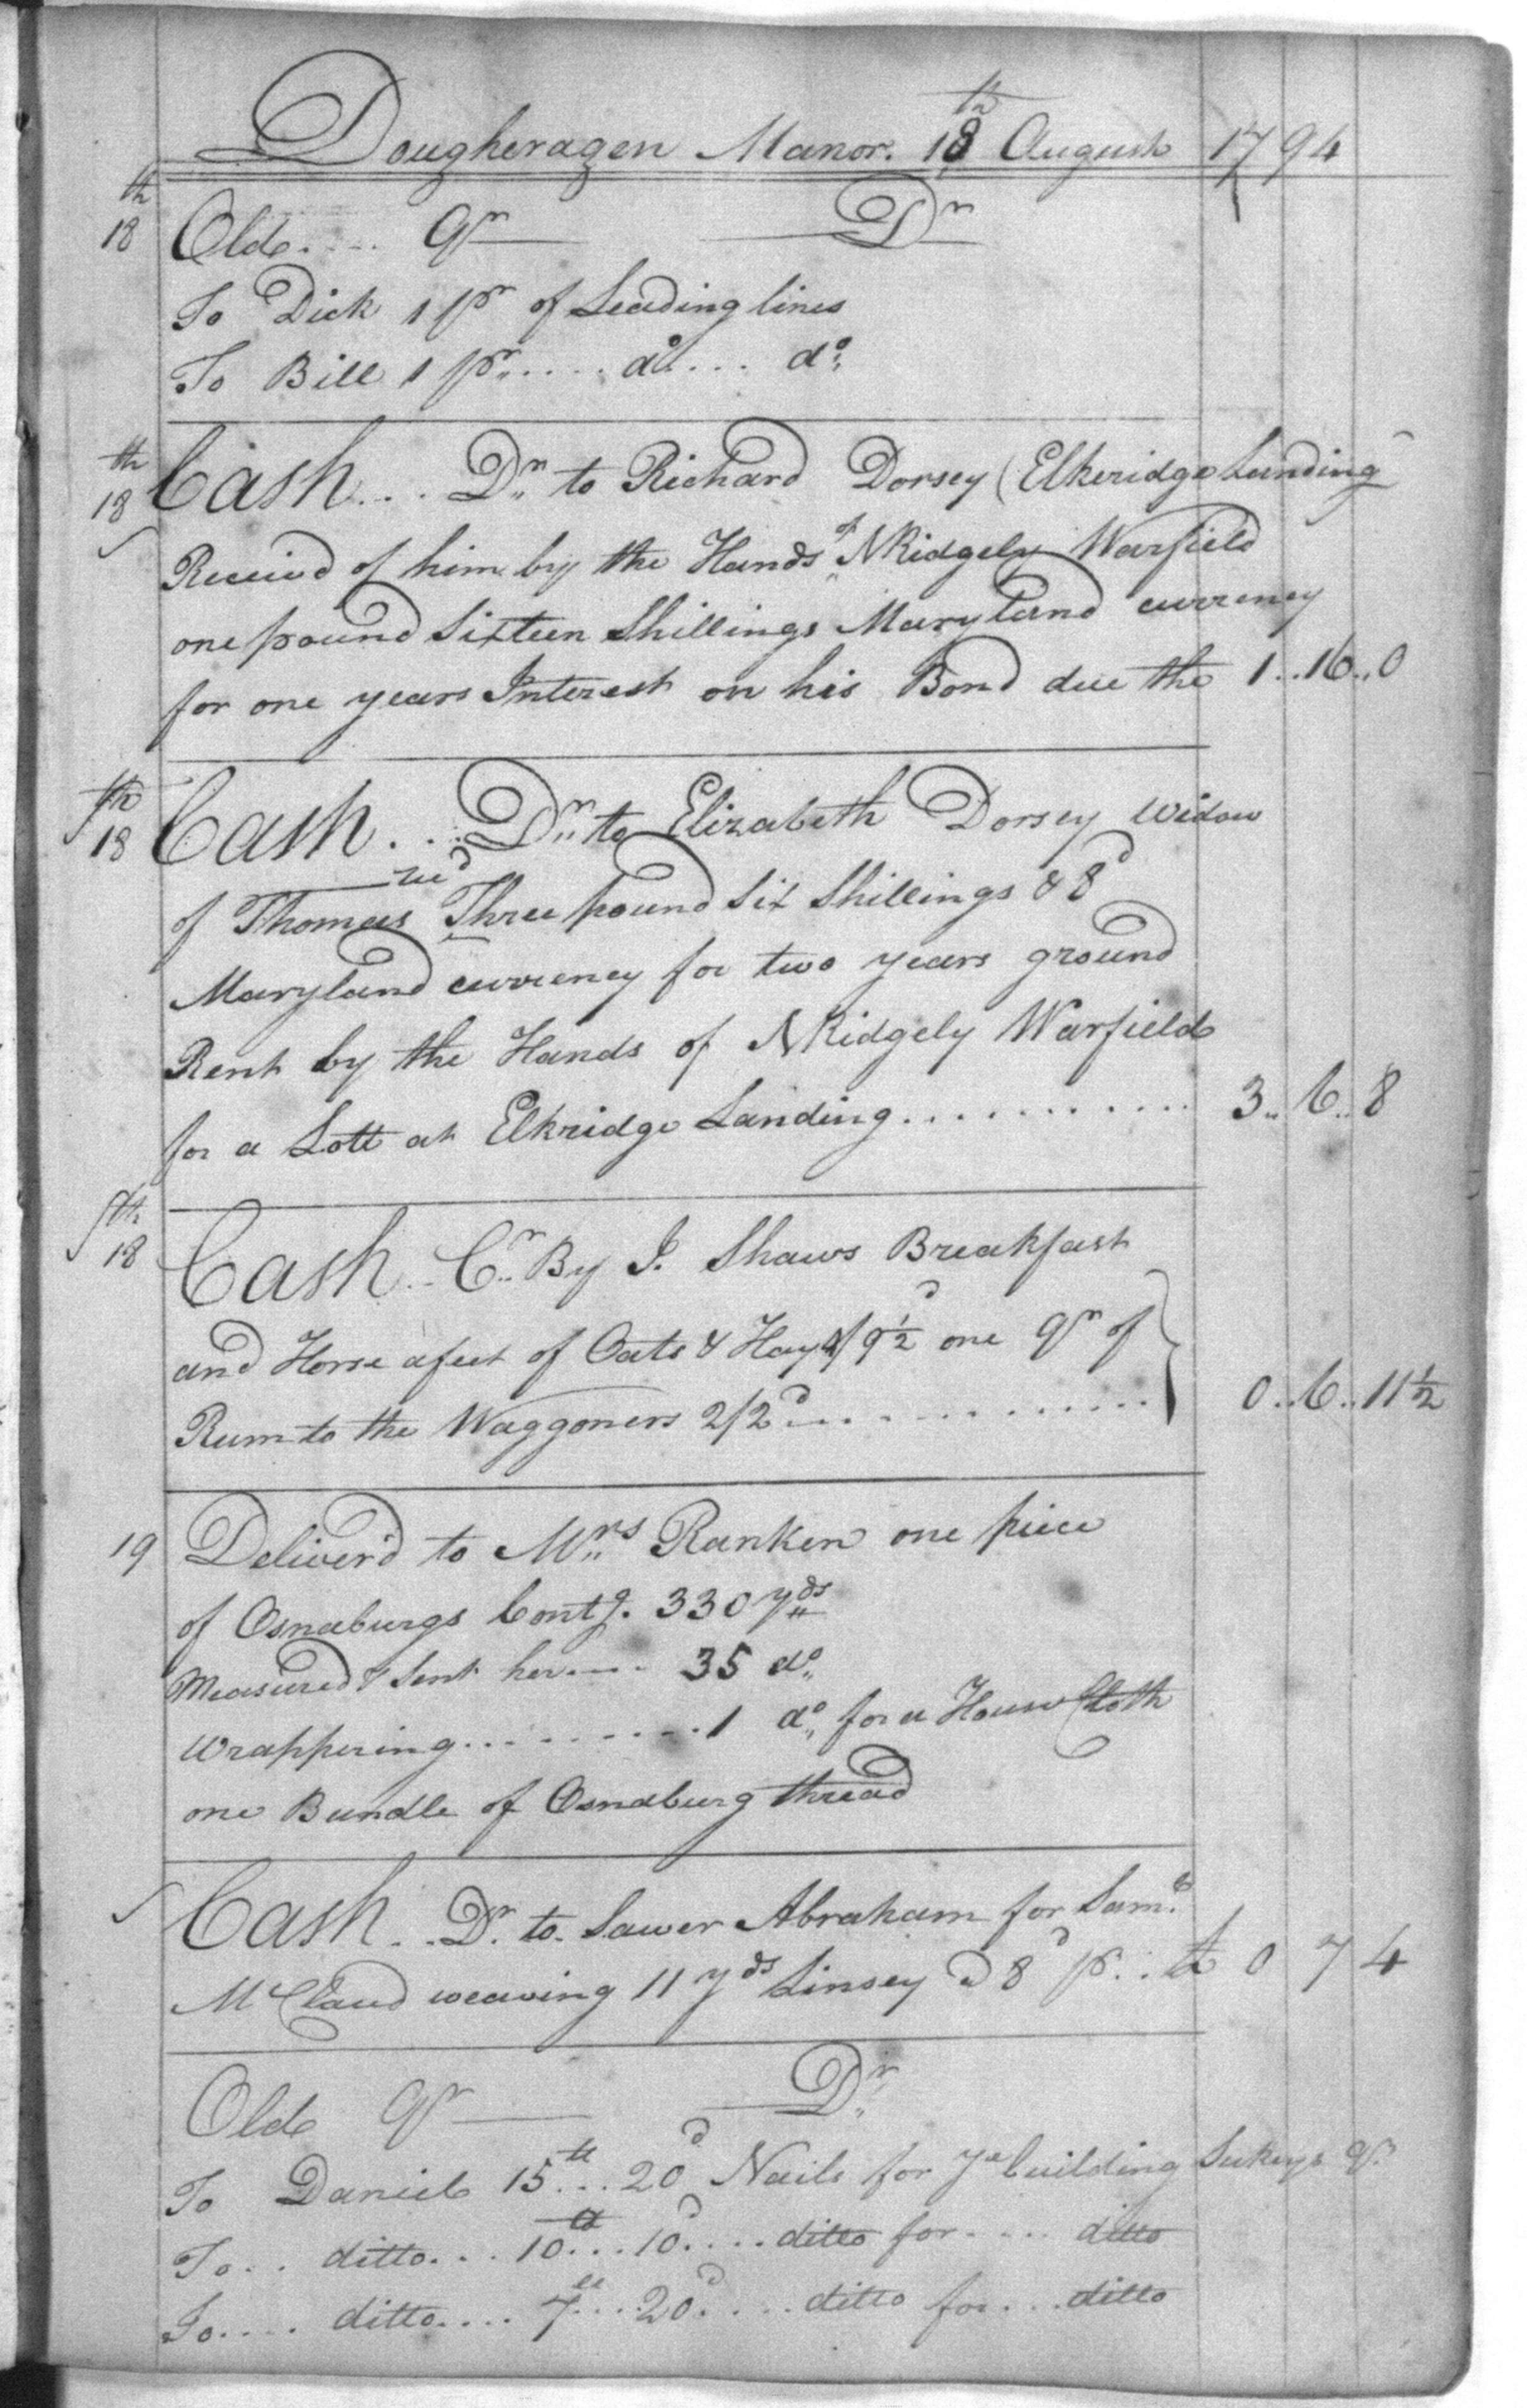 Dougheragen Manor. 18th August 1794
18th Olde .... Qr Dr
To Dick 1 pr of Leading lines
To Bill 1 pr .... do .... do
18th Cash ... Dr to Richard Dorsey (Elkeridge Landing
Receivd of him by the Hands of N Ridgely Warfield
one pound Sixteen Shillings Maryland currency
for one years Interest on his Bond due the 1..16..0
18th Cash ... Dr to Elizabeth Dorsey Widow
of Thomas recd Three pound Six Shillings & 8d
Maryland currency for two years ground
Rent by the Hands of N Ridgely Warfield
for a Lott at Elkridge Landing ........... 3..6..8
18th Cash .. Cr By J. Shaws Breakfast
and Horse afeet of Oats & Hay 4/9½d one Qr of
Rum to the Waggoners 2/2d ............. 0..6..11½
19 Deliver'd to Mrs Ranken one piece
of Osnaburgs Contg. 330 yds
Measured & Sent her .... 35 do
Wrappering ......... 1 do for a House Cloth
one Bundle of Osnaburg thread
Cash .. Dr to Sawer Abraham for Saml
McCland weaving 11 yds Linsey @ 8d pr .. 0 7 4
Olde Qr Dr
To Daniel 15 lb ... 20d Nails for ye building Sukeys Qr
To .. ditto ... 10 lb ... 10d .... ditto for .... ditto
To .... ditto .... 7 lb ... 20d .... ditto for ... ditto